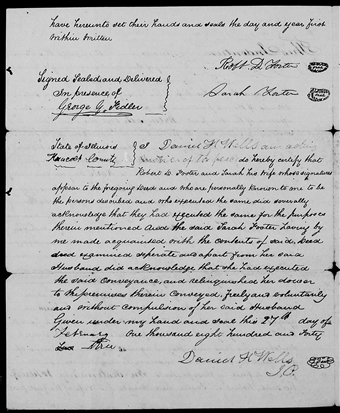 have hereunto set their hands and seals the day and year first
within written
Robt D. Foster
Signed Sealed and Delivered
In presence of
George G. Fidler
Sarah Foster
State of Illinois
Hancock County
I Daniel H Wells an acting
Justice of the peace do hereby certify that
Robert D. Foster and Sarah his wife whose signatures
appear to the foregoing deed and who are personally known to me to be
the persons described and who executed the same did severally
acknowledge that they had executed the same for the purposes
therein mentioned and the said Sarah Foster having by
me made acquainted with the contents of said deed
and examined seperate and apart from her said
Husband did acknowledge that she had executed
the said Conveyance, and relinquished her dower
to the premises therein Conveyed, freely and voluntarily
and without compulsion of her said Husband
Given under my hand and seal this 27th day of
February one thousand eight hundred and Forty
three
Daniel H Wells
J.P.